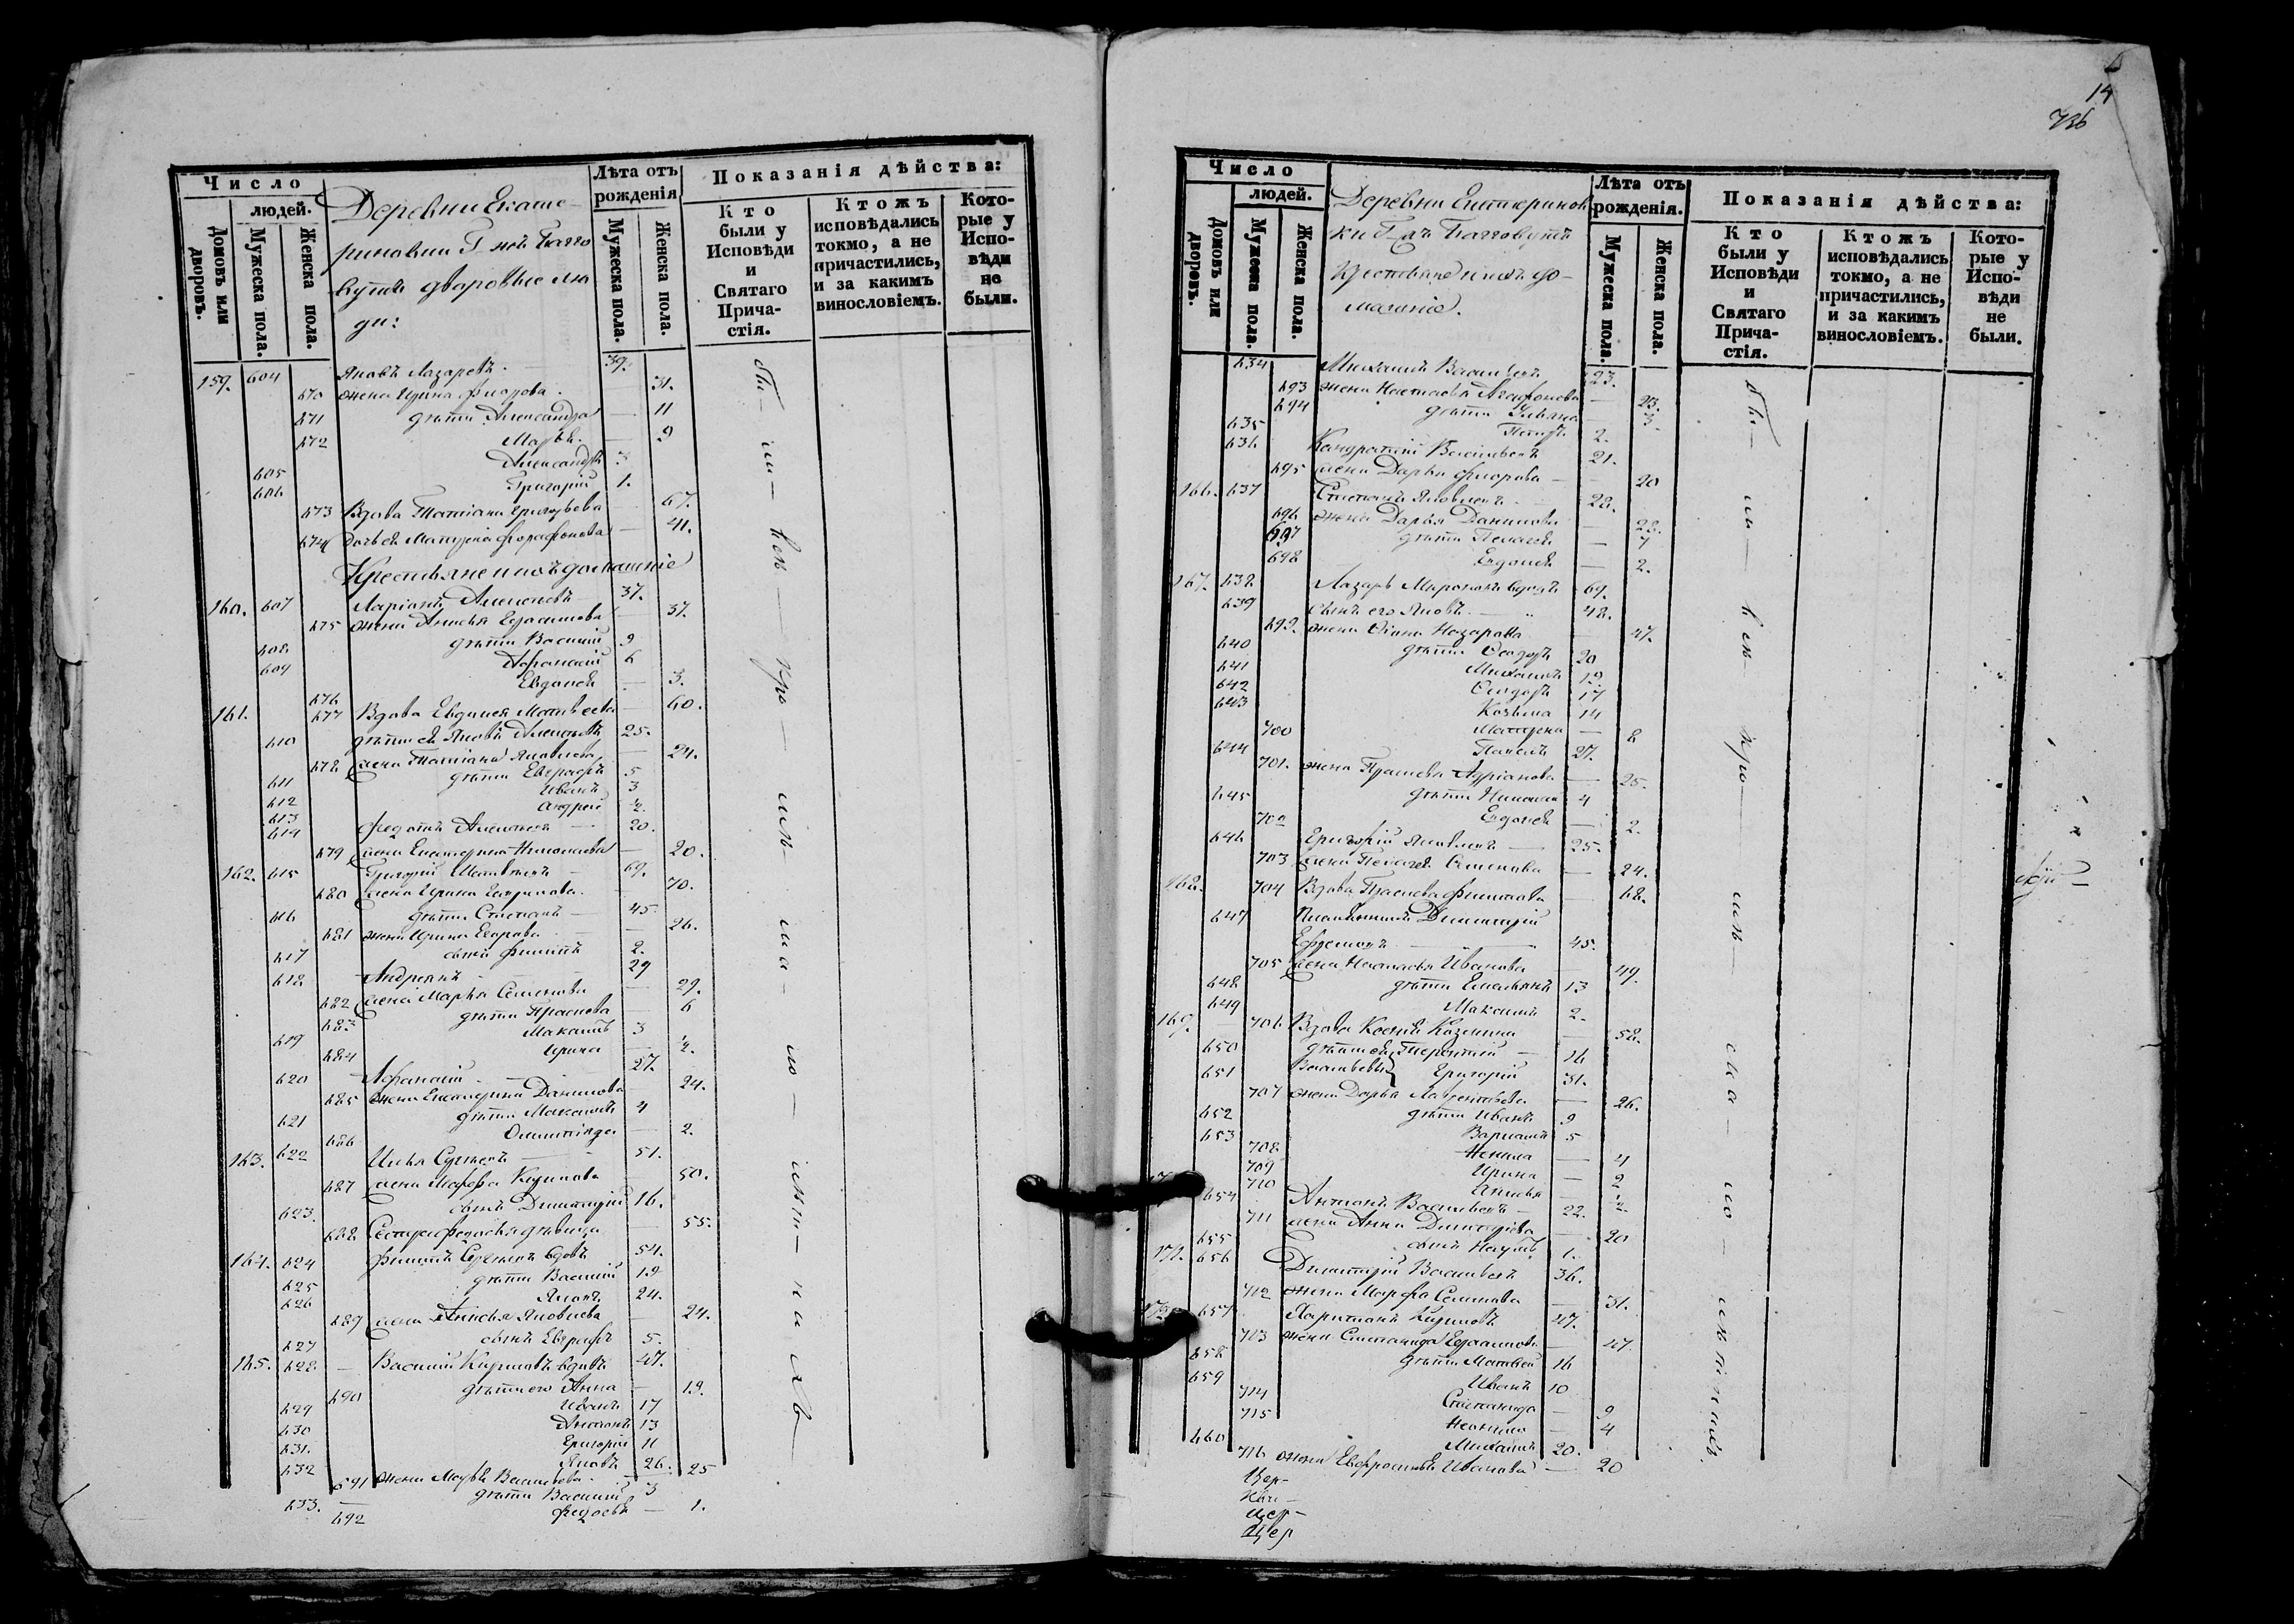 Число
людей.
Домовъ или дворовъ.
Мужеска пола.
Женска пола.
Деревни Екате-
риновки Г-на Багго
вута дворовые лю
ди:
Лѣта отъ рожденія
Мужеска пола.
Женска пола.
Показанія дѣйства:
Кто были у Исповѣди и Святаго Причастія.
Ктожъ исповѣдались токмо, а не причастились, и за какимъ винословіемъ.
Которые у Исповѣди не были.
159. 604 Яковъ Лазаревъ 39.
670 жена Ирина Флорова 31.
671 дѣти Александра 11
672 Марья 9
605 Александръ
606 Григорій 1.
673 Вдова Татіана Григорьева 67.
674 дочь ея Матрена 41.
Крестьяне и ихъ домашніе
160. 607 Ларіонъ Алексѣевъ 37.
675 жена Анисья Герасимова 37.
608 дѣти Василій 9
609 Афанасій 6
676 Евдокія 3.
161. 677 Вдова Евдокія Матвѣева 60.
610 дѣти ея Яковъ Алексѣевъ 25.
678 жена Татіана Яковлева 24.
611 дѣти Евграфъ 5
612 Иванъ 3
613 Андрей ½.
614 Федотъ Алексѣевъ 20.
679 жена Екатерина Николаева 20.
162. 615 Григорій Матвѣевъ 69.
680 жена Ирина Гаврилова 70.
616 дѣти Степанъ 45.
681 жена Ирина Егорова 26.
617 сынъ Филиппъ 2.
618 Андреянъ 29
682 жена Марья Семенова 29.
683 дѣти Прасковья 6
619 Максимъ 3
684 Ирина ½.
620 Афанасій 27.
685 жена Екатерина Данилова 24.
621 дѣти Максимъ 4
686 Олимпіада 2.
163. 622 Илья Сергѣевъ 51.
687 жена Марфа Кирилова 50.
623. сынъ Димитрій 16.
688 Сестра Федосья дѣвица 55.
164. 624 Филиппъ Сергѣевъ вдовъ 54.
625 дѣти Василій 19
626 Яковъ 24.
689 жена Анисья Яковлева 24.
627 сынъ Евграфъ 5.
165. 628 Василій Кириловъ вдовъ 47.
690 дѣти его Анна 19.
629 Иванъ 17
630 Антонъ 13
631. Григорій 11
632 Яковъ 26.
691 жена Марья Васильева 25
633. дѣти Василій 3
692 Федосья 1.
бы- ли- всѣ- кро- мѣ- мла-
14
736
Число
людей.
Домовъ или дворовъ.
Мужеска пола.
Женска пола.
Деревни Екатеринов
ки Г-на Багговута
крестьяне и ихъ до-
машніе.
Лѣта отъ рожденія.
Мужеска пола.
Женска пола.
Показанія дѣйства:
Кто были у Исповѣди и Святаго Причастія.
Ктожъ исповѣдались токмо, а не причастились, и за какимъ винословіемъ.
Которые у Исповѣди не были.
634 Михаилъ Васильевъ 23.
693 жена Настасья Агафонова 23.
694 дѣти Ульяна 3.
635 Петръ 2.
636 Кондратій Васильевъ 21.
695 жена Дарья Флорова 20
166. 637 Степанъ Яковлевъ 28.
696 жена Дарья Данилова 28.
697 дѣти Пелагея 7
698 Евдокія 2.
167. 638 Лазарь Мироновъ вдовъ 69.
639 сынъ его Яковъ 48.
699. жена Назарова 47.
640 дѣти Ѳеодоръ 20
641 Михаилъ 19.
642 17
643 Козьма 14
700 Матрена 8
644 Павелъ 27.
701. жена Прасковья Адріанова 25.
645 дѣти Николай 4
702 Евдокія 2.
646 Григорій Яковлевъ 25.
703 жена Пелагея Семенова 24.
168. 704 Вдова Прасковья Филипова 68.
647 Димитрій
Ефремовъ 45.
705 жена Настасья Иванова 49.
648 дѣти Емельянъ 13
649 Максимъ 2.
169. 706 Вдова Ксенія Козмина 58.
650 дѣти ея Терентій 16
651 Васильевы Григорій 31.
707 жена Дарья Лаврентьева 26.
652 дѣти Иванъ 9
653 5
708 Ненила 4
709 Ирина 2
710 Анисья ½
654 Антонъ Васильевъ 22.
711 жена Анна Димитріева 20
655 сынъ Наумъ 1.
171. 656 Димитрій Васильевъ 36.
712 жена Марфа Семенова 31.
657 Харитонъ Кириловъ 47.
713 жена Степанида Герасимова 47
658 дѣти Матвей 16
659 Иванъ 10
714 Степанида 9
715 Ненила 4
660 Михаилъ 20.
716 жена Евфросинья Иванова 20
бы- ли- всѣ- кро- мѣ-
Цер-
цер-
цер